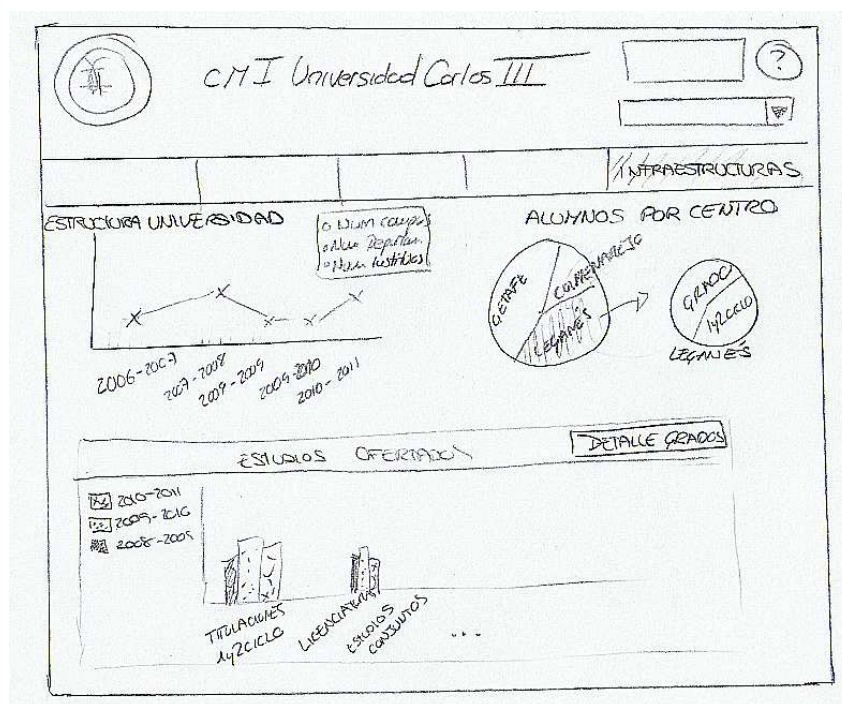 CMI Universidad Carlos III
?
INFRAESTRUCTURAS
ESTRUCTURA UNIVERSIDAD
o Num campus
o Num Departam.
o Num Institutos
2006-2007
2007-2008
2009-2009
2009-2010
2010-2011
ALUMNOS POR CENTRO
GETAFE
COLMENAREJO
LEGANÉS
GRADO
1y2CICLO
LEGANÉS
ESTUDIOS OFERTADOS
DETALLE GRADOS
2010-2011
2009-2010
2008-2009
TITULACIONES
1y2CICLO
LICENCIATURA
ESTUDIOS
CONJUNTOS
...